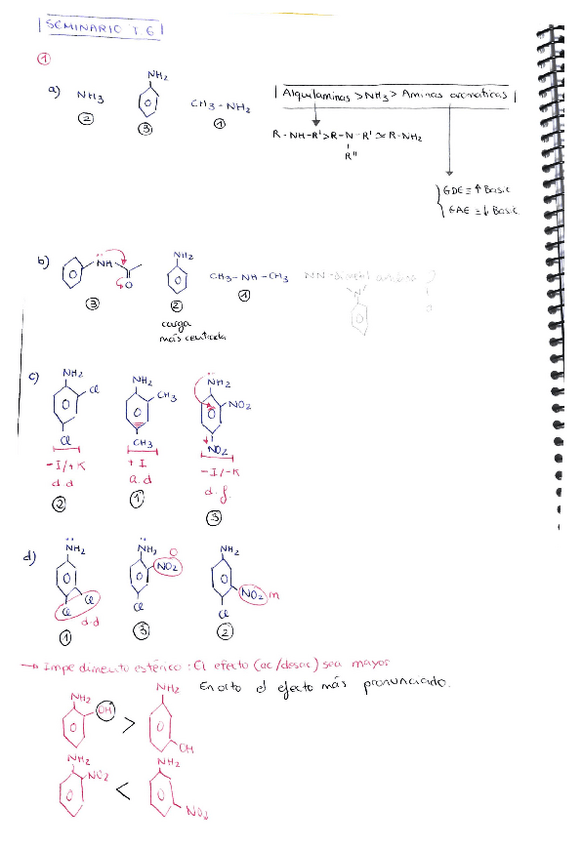 SEMINARIO T.6
①
a) NH3 NH2 CH3-NH2
② ③ ①
Alquilaminas > NH3 > Aminas aromáticas
R-NH-R' > R-N-R' > R-NH2
R''
GDE = ↑ Basic
GAE = ↓ Basic
b) NH O NH2 CH3-NH-CH3
③ ② ①
carga
más centrada
c) NH2 Cl Cl NH2 CH3 CH3 NH2 NO2 NO2
-I/+K +I -I/-K
d.d a.d d.f.
② ① ③
d) NH2 Cl Cl NH2 NO2 Cl NH2 NO2 Cl
d.d O m
① ③ ②
→ Impedimento estérico: El efecto (ac/desac) sea mayor
En orto el efecto más pronunciado.
NH2 OH > NH2 OH
NH2 NO2 < NH2 NO2